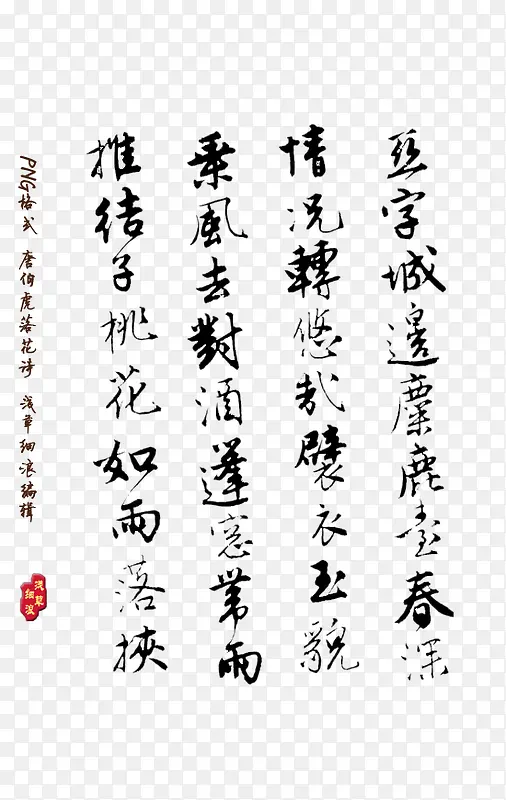 亞字城邊麋鹿臺春深
情況轉悠哉襞衣玉貌
乗風去對酒蓬窓帶雨
推結子桃花如雨落挾
PNG格式 唐伯虎落花诗 浅草细浪编辑
浅草
细浪